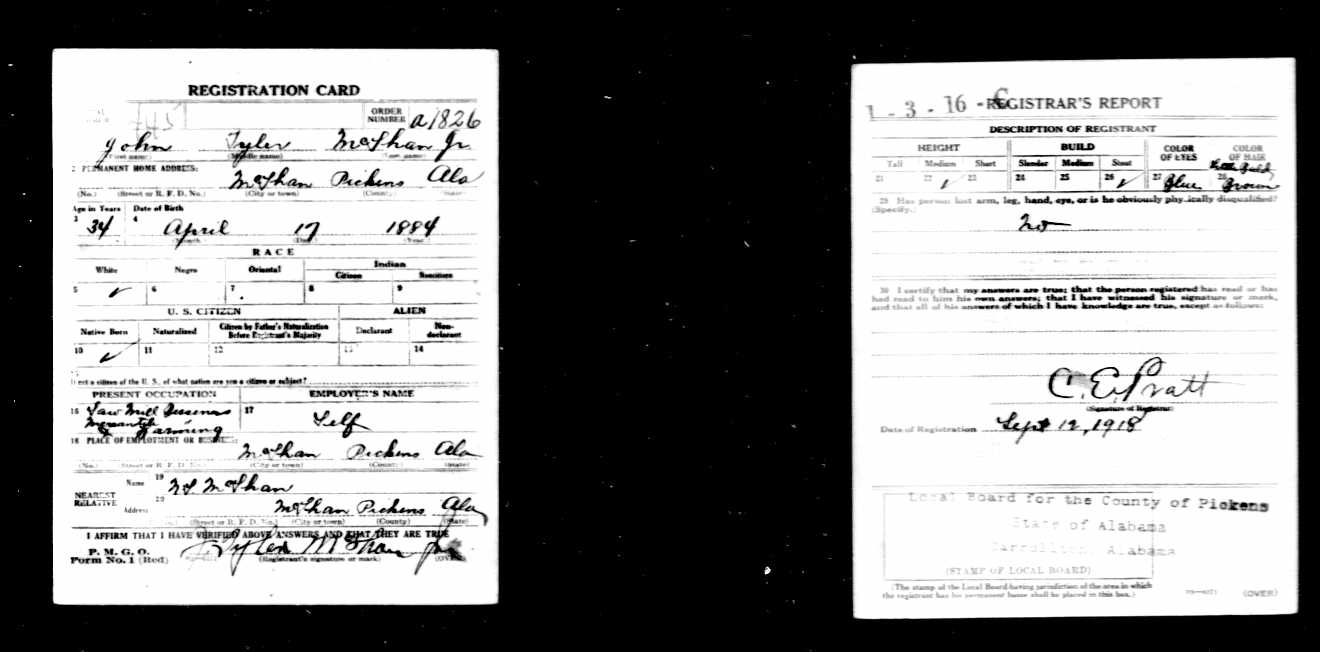 REGISTRATION CARD
745
ORDER NUMBER a1826
John Tyler McShan Jr.
(First name) (Middle name) (Last name)
2 PERMANENT HOME ADDRESS:
McShan Pickens Ala
(No.) (Street or R. F. D. No.) (City or town) (County) (State)
Age in Years Date of Birth
3 34 4 April 17 1884
(Month) (Day) (Year)
RACE
White Negro Oriental Indian
Citizen Noncitizen
5 ✓ 6 7 8 9
U. S. CITIZEN ALIEN
Native Born Naturalized Citizen by Father's Naturalization Before Registrant's Majority Declarant Non-declarant
10 ✓ 11 12 13 14
15
If not a citizen of the U. S., of what nation are you a citizen or subject?
PRESENT OCCUPATION EMPLOYER'S NAME
16 Saw Mill 17 Self
Farming
18 PLACE OF EMPLOYMENT OR BUSINESS:
McShan Pickens Ala
(No.) (Street or R. F. D. No.) (City or town) (County) (State)
NEAREST RELATIVE
Name 19 McShan
Address 20 McShan Pickens Ala
(No.) (Street or R. F. D. No.) (City or town) (County) (State)
I AFFIRM THAT I HAVE VERIFIED ABOVE ANSWERS AND THAT THEY ARE TRUE
P. M. G. O.
Form No. 1 (Red) J. Tyler McShan Jr
(Registrant's signature or mark) (OVER)
1 - 3 - 16 - C REGISTRAR'S REPORT
DESCRIPTION OF REGISTRANT
HEIGHT BUILD COLOR OF EYES COLOR OF HAIR
Tall Medium Short Slender Medium Stout
21 22 ✓ 23 24 25 26 ✓ 27 Blue 28 Brown
29 Has person lost arm, leg, hand, eye, or is he obviously physically disqualified?
(Specify.)
No
30 I certify that my answers are true; that the person registered has read or has
had read to him his own answers; that I have witnessed his signature or mark,
and that all of his answers of which I have knowledge are true, except as follows:
C. E. Pratt
(Signature of Registrar)
Date of Registration Sept 12, 1918
Local Board for the County of Pickens
State of Alabama
Carrollton, Alabama
(STAMP OF LOCAL BOARD)
(The stamp of the Local Board having jurisdiction of the area in which
the registrant has his permanent home shall be placed in this box.)
(OVER)